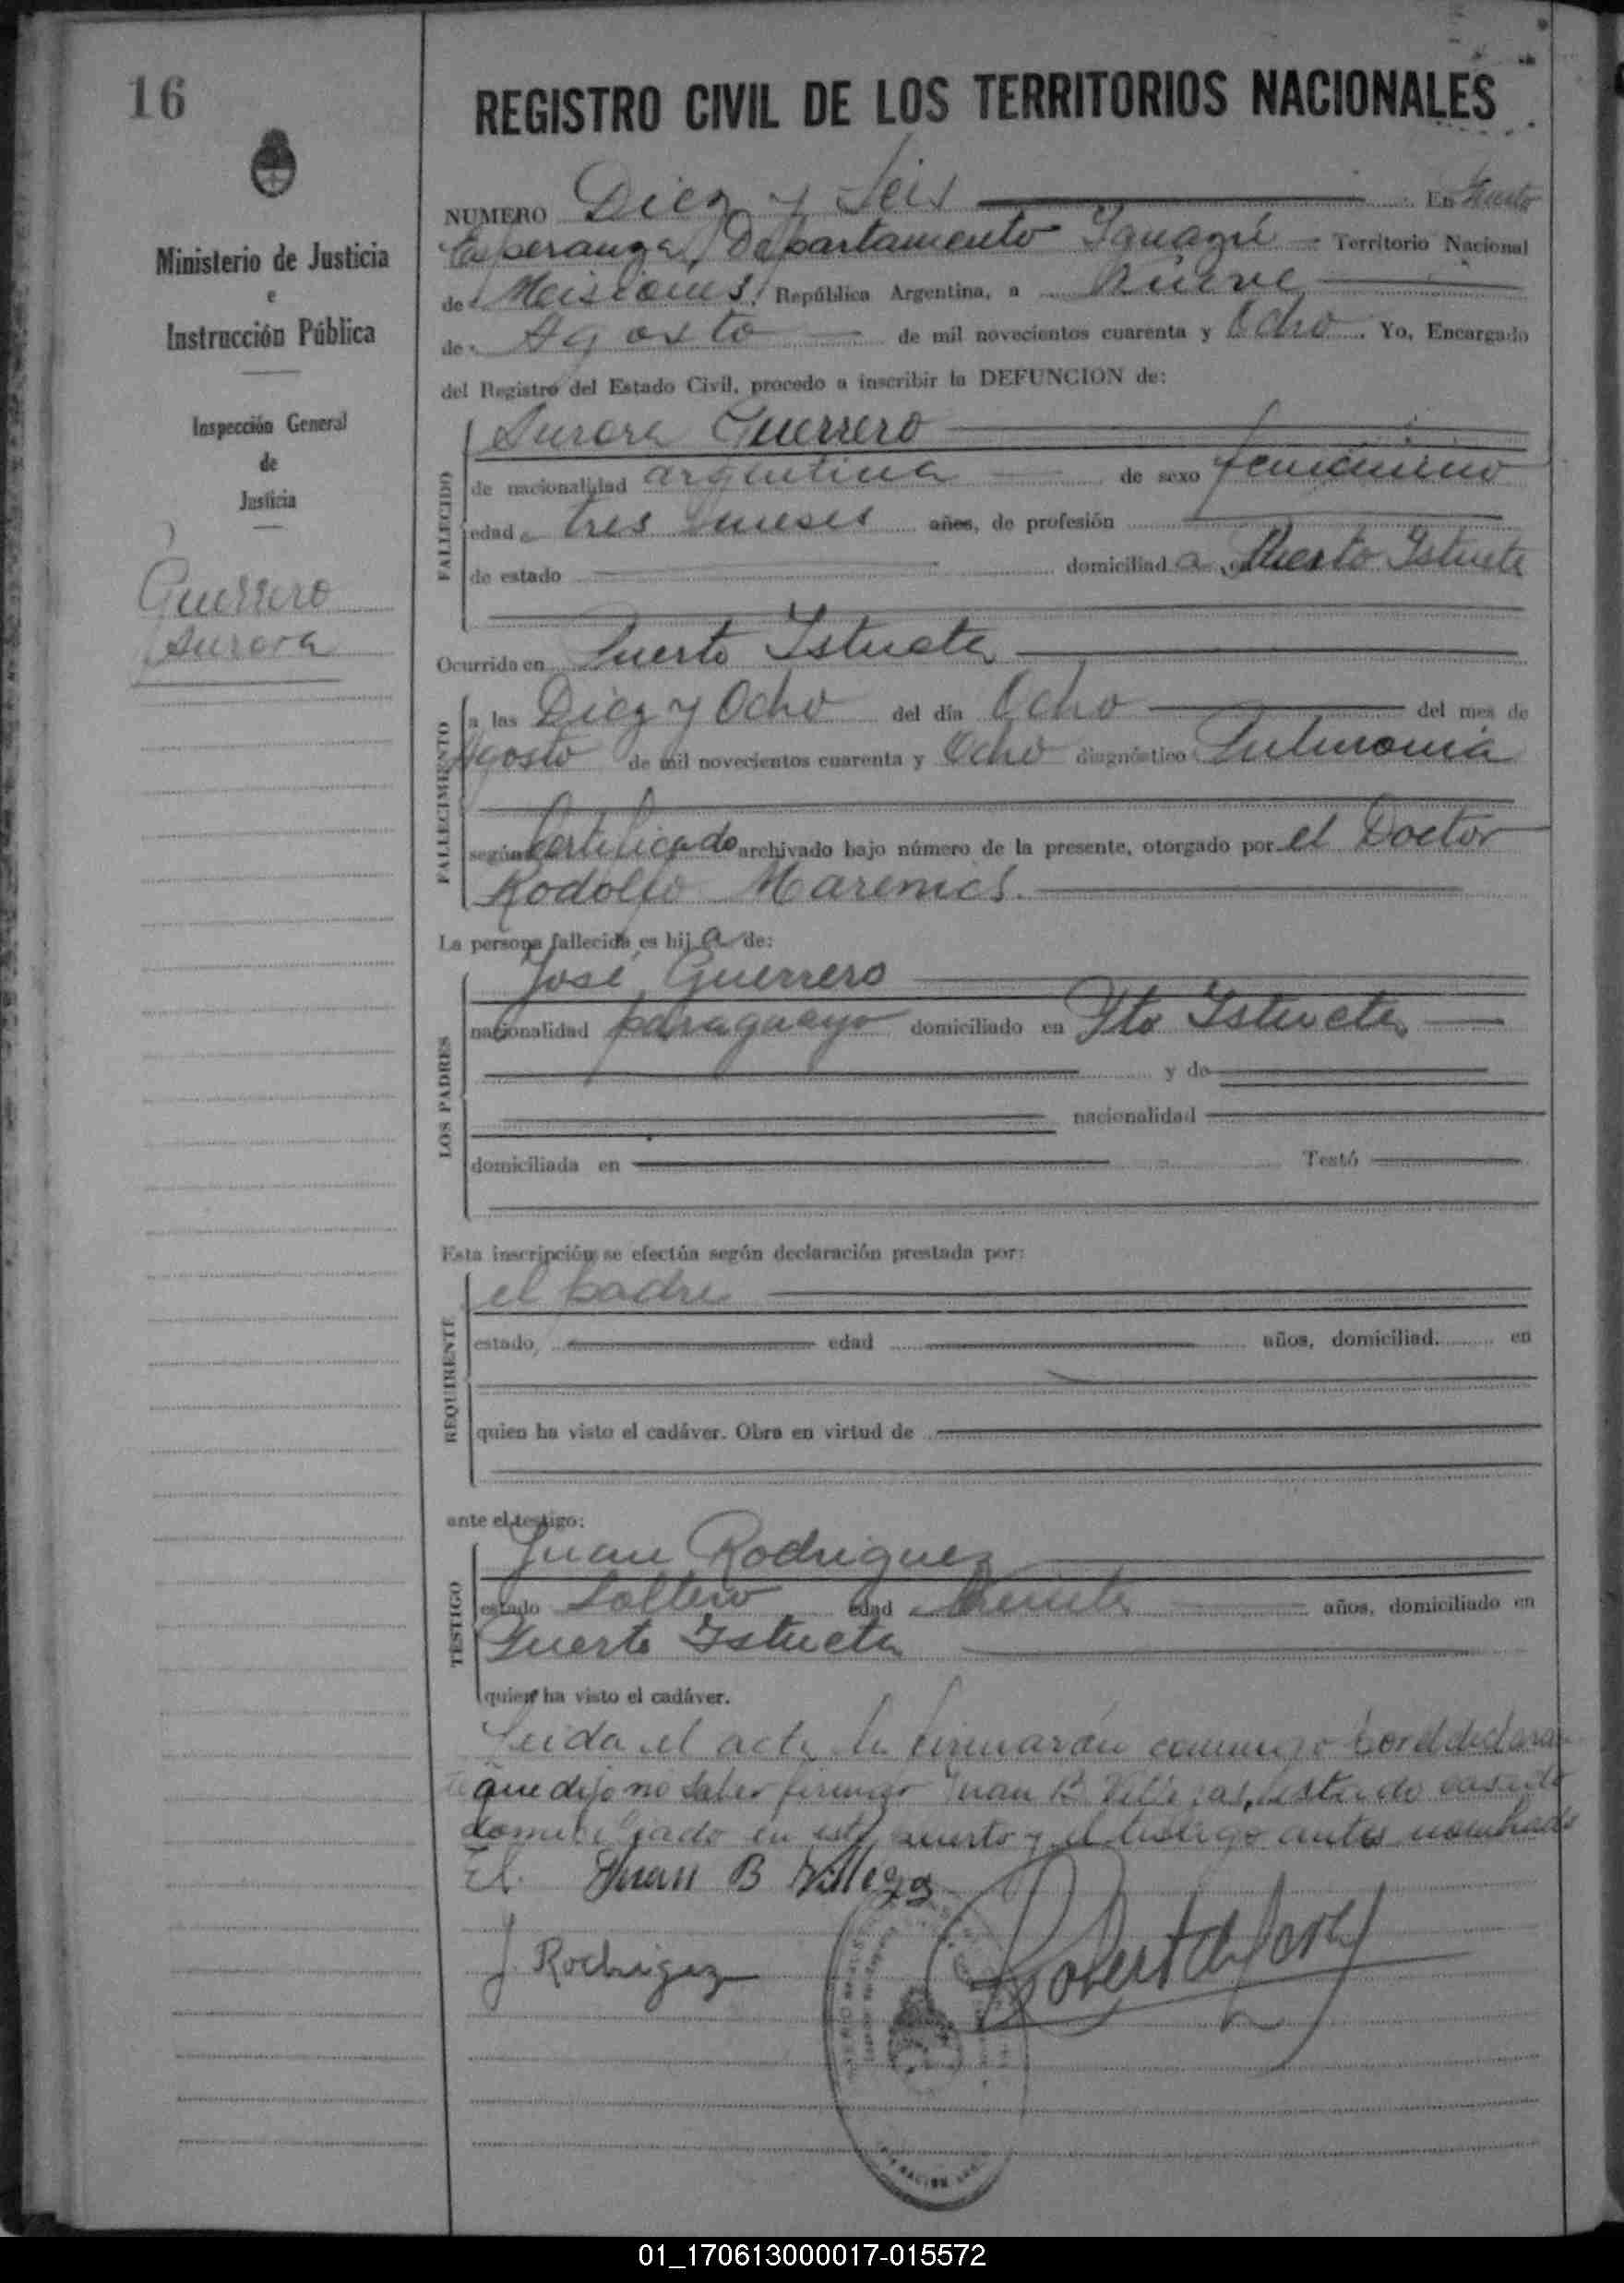 16
Ministerio de Justicia
e
Instrucción Pública
Inspección General
de
Justicia
Guerrero
Aurora
REGISTRO CIVIL DE LOS TERRITORIOS NACIONALES
NUMERO Diez y Seis En Puerto
Esperanza, Departamento Iguazú Territorio Nacional
de Misiones, República Argentina, a Nueve
de Agosto de mil novecientos cuarenta y Ocho. Yo, Encargado
del Registro del Estado Civil, procedo a inscribir la DEFUNCION de:
FALLECIDO
Aurora Guerrero
de nacionalidad argentina de sexo femenino
edad tres meses años, de profesión
de estado domiciliad a Puerto Istueta
Ocurrido en Puerto Istueta
FALLECIMIENTO
a las Diez y Ocho del día Ocho del mes de
Agosto de mil novecientos cuarenta y Ocho diagnóstico Pulmonia
según Certificado archivado bajo número de la presente, otorgado por el Doctor
Rodolfo
La persona fallecida es hij a de:
LOS PADRES
José Guerrero
nacionalidad paraguayo domiciliado en Pto Istueta
y de
nacionalidad
domiciliada en Testó
Esta inscripción se efectúa según declaración prestada por:
REQUIRENTE
el padre
estado, edad años, domiciliad. en
quien ha visto el cadáver. Obra en virtud de
ante el testigo:
TESTIGO
Juan Rodriguez
estado Soltero edad años, domiciliado en
Puerto Istueta
quien ha visto el cadáver.
Leida el acta la firmarán conmigo por el declaran
te que dijo no saber firmar Juan B Villegas, estado casado
domiciliado en este puerto y el testigo antes nombrado
Juan B Villegas
J. Rodrigez
01_170613000017-015572